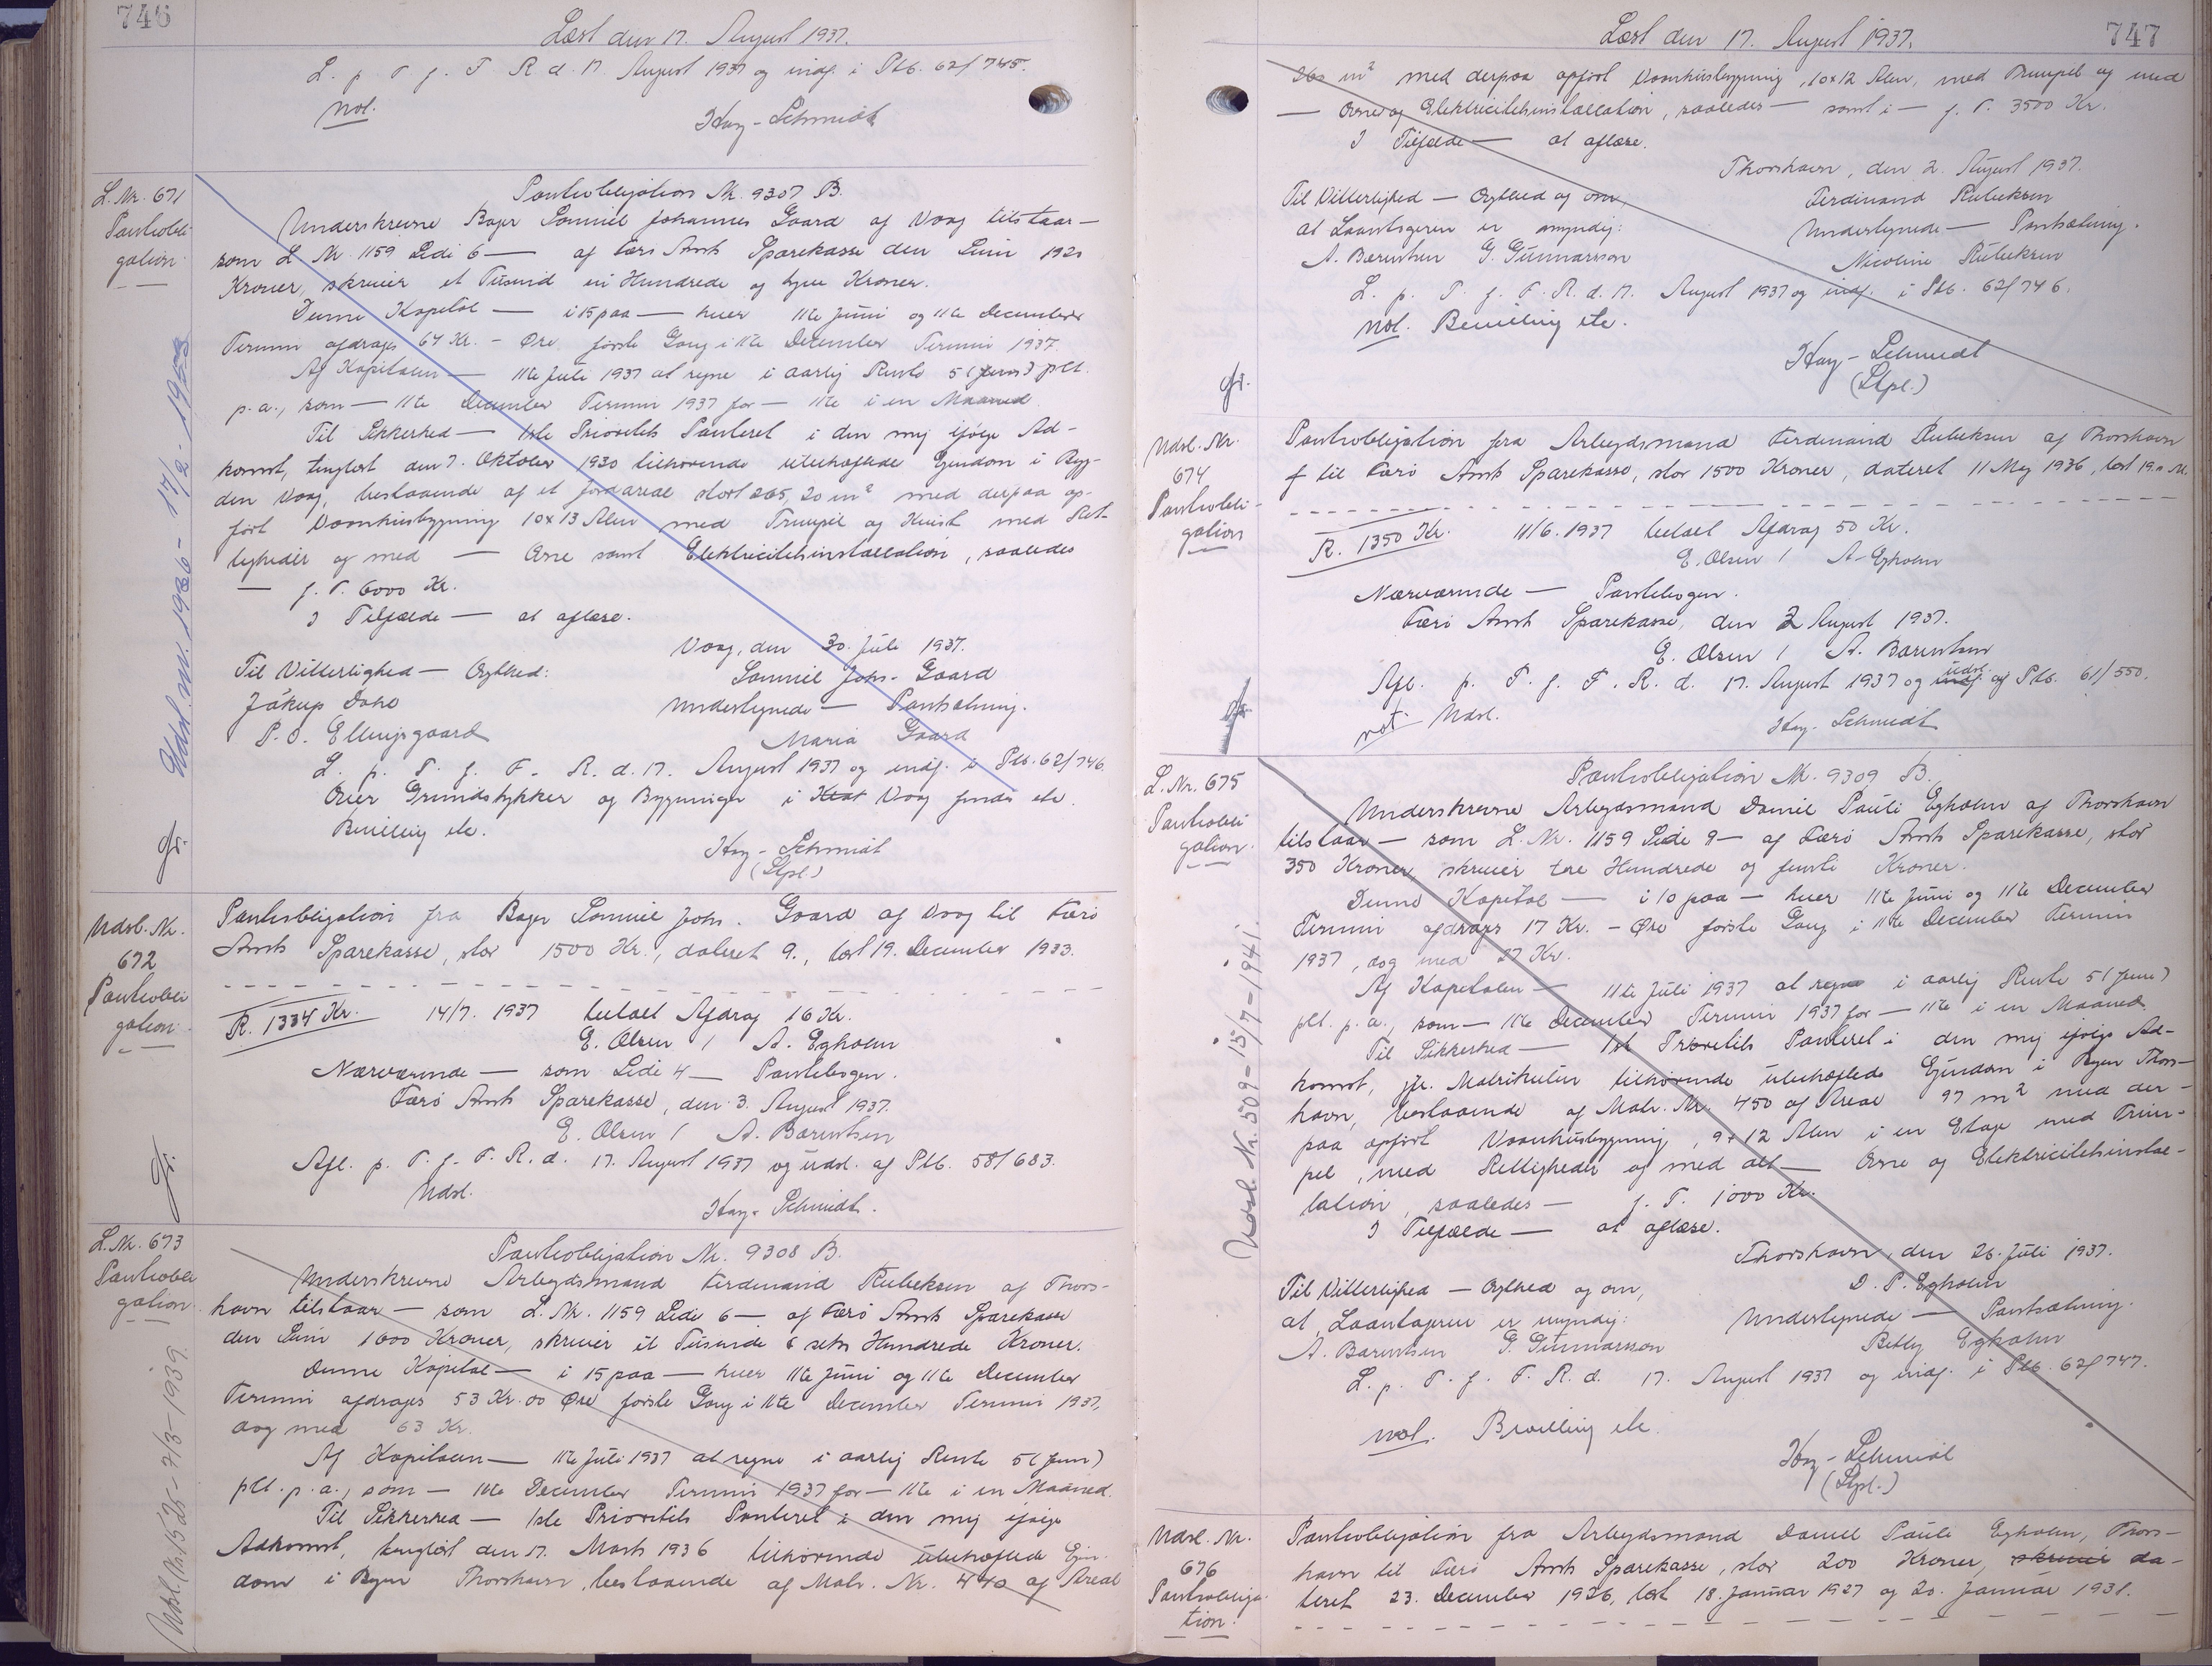 746
Læst den 17. August 1937.
L. p. T. f. F. R. d. 17. August 1937 og indf. i Ptb. 62/745.
Not.
Hay-Schmidt
L. Nr. 671
Pantobli-
gation
Pantobligation Nr. 9307 B.
Underskrevne Bager Samuel Johannes Gaard af Vaag tilstaar —
som L. Nr. 1159 Side 6 — af Færø Amts Sparekasse den Sum 1120
Kroner, skriver et Tusind en Hundrede og tyve Kroner.
Denne Kapital — i 15 paa — hver 11te Juni og 11te December
Termin afdrages 67 Kr. - Øre første Gang i 11te December Termin 1937.
Af Kapitalen — 11te Juli 1937 at regne i aarlig Rente 5 (fem) pCt.
p.a., som — 11te December Termin 1937 for — 11te i en Maaned.
Til Sikkerhed — 1ste Prioritets Panteret i den mig ifølge Ad-
komst, tinglæst den 7. Oktober 1930 tilhørende ubehæftede Ejendom i Byg-
den Vaag, bestaaende af et Jordareal stort 265,20 m² med derpaa op-
ført Vaaningshusbygning 10x13 Alen med Trempel og Kvist med Ret-
tigheder og med — Ovne samt Elektricitetsinstallation, saaledes
— f. T. 6000 Kr.
I Tilfælde — at aflæse.
Vaag, den 30. Juli 1937.
Til Vitterlighed — Ægthed:
Samuel Johs. Gaard
Jákup Dahl
Undertegnede — Pantsætning.
P. O. Ellingsgaard
Maria Gaard
L. p. T. f. F. R. d. 17. August 1937 og indf. i Ptb. 62/746.
Over Grundstykker og Bygninger i Vaag findes ete.
Bevilling ete.
Hay-Schmidt
(Stpl.)
Udsl. Nr.
672
Pantobli
gation
Pantobligation fra Bager Samuel Johs. Gaard af Vaag til Færø
Amts Sparekasse, stor 1500 Kr., dateret 9., læst 19. December 1933.
R. 1334 Kr. 14/7. 1937 betalt Afdrag 16 Kr.
E. Olsen / A. Egholm
Nærværende — som Side 4 — Pantebogen.
Færø Amts Sparekasse, den 3. August 1937.
E. Olsen / A. Bærentsen
Afl. p. T. f. F. R. d. 17. August 1937 og udsl. af Ptb. 58/683.
Udsl.
Hay-Schmidt.
L. Nr. 673
Pantobli
gation
Pantobligation Nr. 9308 B.
Underskrevne Arbejdsmand Ferdinand Rubeksen af Thors-
havn tilstaar — som L. Nr. 1159 Side 6 — af Færø Amts Sparekasse
den Sum 1600 Kroner, skriver et Tusinde & seks Hundrede Kroner.
Denne Kapital — i 15 paa — hver 11te Juni og 11te December
Termin afdrages 53 Kr. 00 Øre første Gang i 11te December Termin 1937,
dog med 63 Kr.
Af Kapitalen — 11te Juli 1937 at regne i aarlig Rente 5 (fem)
pCt. p.a., som — 11te December Termin 1937 for — 11te i en Maaned.
Til Sikkerhed — 1ste Prioritets Panteret i den mig ifølge
Adkomst, tinglæst den 17. Marts 1936 tilhørende ubehæftede Ejen-
dom i Byen Thorshavn, bestaaende af Matr. Nr. 440 af Areal
747
Læst den 17. August 1937.
m² med derpaa opført Vaaningshusbygning, 10x12 Alen, med Trempel og med
— Ovne og Elektricitetsinstallation, saaledes — samt i — f. T. 3500 Kr.
I Tilfælde — at aflæse.
Thorshavn, den 2. August 1937.
Til Vitterlighed — Ægthed og om,
Ferdinand Rubeksen
at Laantageren er myndig:
Undertegnede — Pantsætning.
A. Bærentsen G. Gunnarsson
Nicoline Rubeksen
L. p. T. f. F. R. d. 17. August 1937 og indf. i Ptb. 62/746.
Not. Bevilling ete.
Hay-Schmidt
(Stpl.)
Udsl. Nr.
674
Pantobli-
gation
Pantobligation fra Arbejdsmand Ferdinand Rubeksen af Thorshavn
til Færø Amts Sparekasse, stor 1500 Kroner, dateret 11 Maj 1936, læst 19. s. M.
R. 1350 Kr. 11/6. 1937 betalt Afdrag 50 Kr.
E. Olsen / A. Egholm
Nærværende — Pantebogen.
Færø Amts Sparekasse, den 2 August 1937.
E. Olsen / A. Bærentsen
Afl. p. T. f. F. R. d. 17. August 1937 og udsl. af Ptb. 61/550.
not Udsl.
Hay-Schmidt
L. Nr. 675
Pantobli
gation
Pantobligation Nr. 9309 B.
Underskrevne Arbejdsmand Daniel Pauli Egholm af Thorshavn
tilstaar — som L. Nr. 1159 Side 8 — af Færø Amts Sparekasse, stor
350 Kroner, skriver tre Hundrede og femti Kroner.
Denne Kapital — i 10 paa — hver 11te Juni og 11te December
Termin afdrages 17 Kr. - Øre første Gang i 11te December Termin
1937, dog med 27 Kr.
Af Kapitalen — 11te Juli 1937 at regne i aarlig Rente 5 (fem)
pCt. p.a., som — 11te December Termin 1937 for — 11te i en Maaned.
Til Sikkerhed — 1st Prioritets Panteret i den mig ifølge Ad-
komst, jfr. Matrikulen tilhørende ubehæftede Ejendom i Byen Thors-
havn, bestaaende af Matr. Nr. 450 af Areal 97 m² med der-
paa opført Vaaningshusbygning, 9x12 Alen i en Etage med Trem-
pel, med Rettigheder og med alt — Ovne og Elektricitetsinstal-
lation, saaledes — f. T. 1000 Kr.
I Tilfælde — at aflæse.
Thorshavn, den 26. Juli 1937.
Til Vitterlighed — Ægthed og om,
D. P. Egholm
at Laantageren er myndig:
Undertegnede — Pantsætning.
A. Bærentsen G. Gunnarsson
Betty Egholm
L. p. T. f. F. R. d. 17. August 1937 og indf. i Ptb. 62/747.
not. Bevilling ete.
Hay-Schmidt
(Stpl.)
Udsl. Nr.
676
Pantobliga-
tion
Pantobligation fra Arbejdsmand Daniel Pauli Egholm, Thors-
havn til Færø Amts Sparekasse, stor 200 Kroner, skriver da-
teret 23. December 1926, læst 18. Januar 1927 og 20. Januar 1931.
Udsl. Nr. 1986 - 17/2 - 1953
Udsl. Nr. 1525 - 7/3 - 1939.
Udsl. Nr. 509 - 15/7 - 1941.